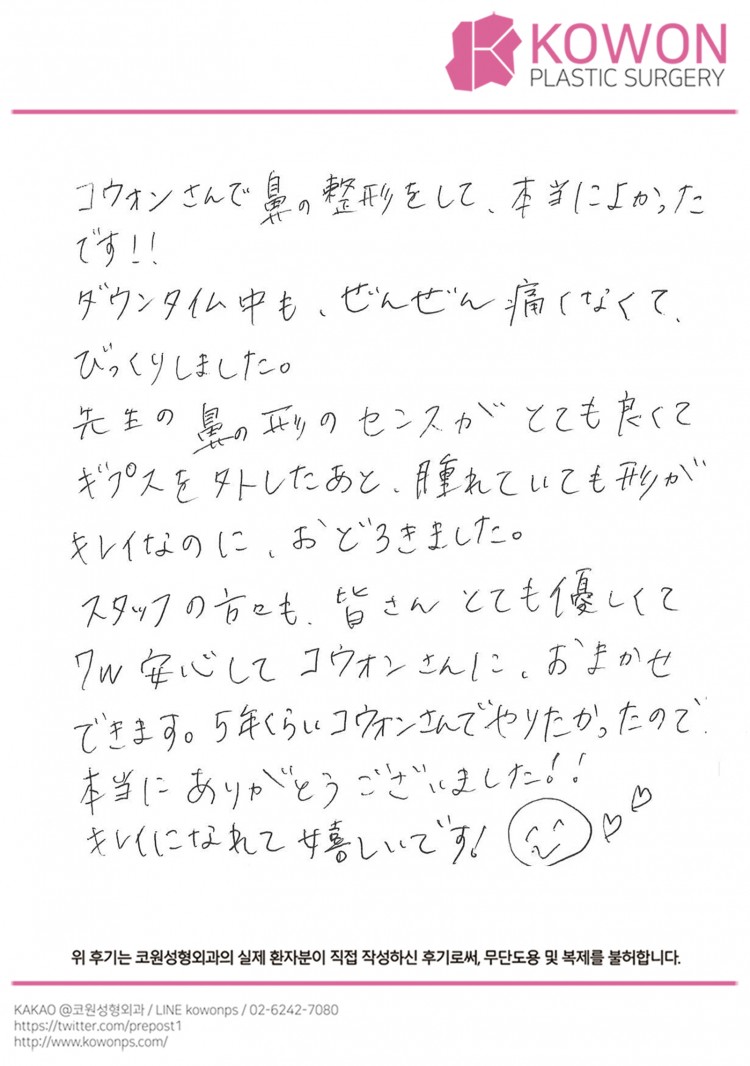 KOWON
PLASTIC SURGERY
コウォンさんで鼻の整形をして、本当によかった
です!!
ダウンタイム中も、ぜんぜん痛くなくて、
びっくりしました。
先生の鼻の形のセンスがとても良くて
ギプスを外したあと、腫れていても形が
キレイなのに、おどろきました。
スタッフの方々も、皆さんとても優しくて
安心してコウォンさんに、おまかせ
できます。5年くらいコウォンさんでやりたかったので、
本当にありがとうございました!!
キレイになれて嬉しいです!
위 후기는 코원성형외과의 실제 환자분이 직접 작성하신 후기로써, 무단도용 및 복제를 불허합니다.
KAKAO @코원성형외과 / LINE kowonps / 02-6242-7080
https://twitter.com/prepost1
http://www.kowonps.com/